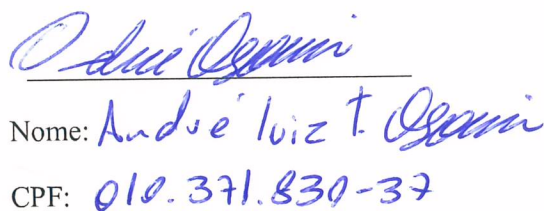 Nome: André luiz t.
CPF: 010.371.830-37